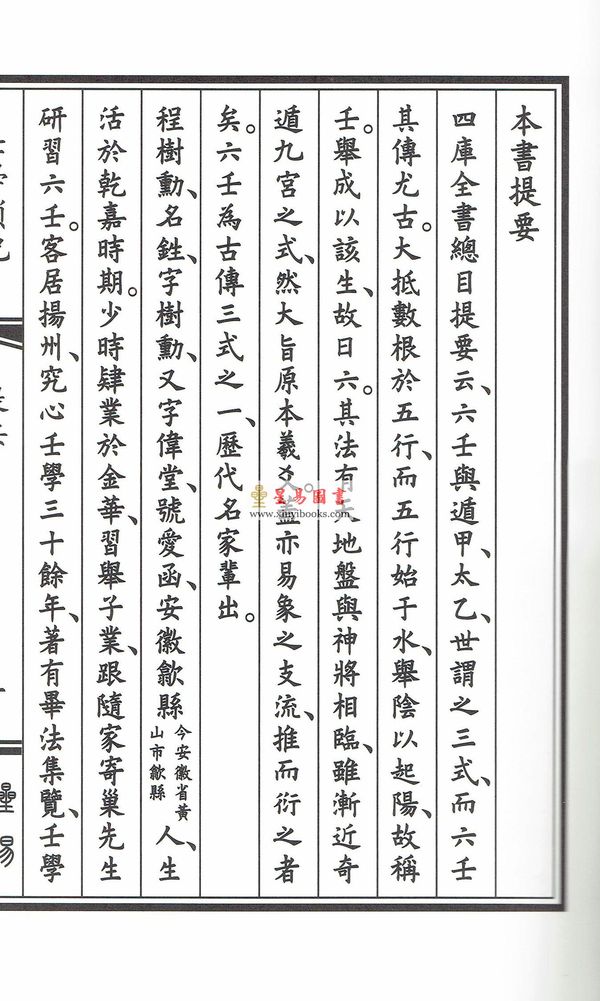 本書提要
四庫全書總目提要云、六壬與遁甲、太乙、世謂之三式、而六壬
其傳尤古。大抵數根於五行、而五行始于水、舉陰以起陽、故稱
壬。舉成以該生、故曰六。其法有天地盤與神將相臨、雖漸近奇
遁九宮之式、然大旨原本羲爻。蓋亦易象之支流、推而衍之者
矣。六壬為古傳三式之一、歷代名家輩出。
程樹勳、名鉎、字樹勳、又字偉堂、號愛函、安徽歙縣今安徽省黃山市歙縣人、生
活於乾嘉時期。少時肄業於金華、習舉子業、跟隨家寄巢先生
研習六壬。客居揚州、究心壬學三十餘年、著有畢法集覽、壬學
星易圖書
www.xinyibooks.com